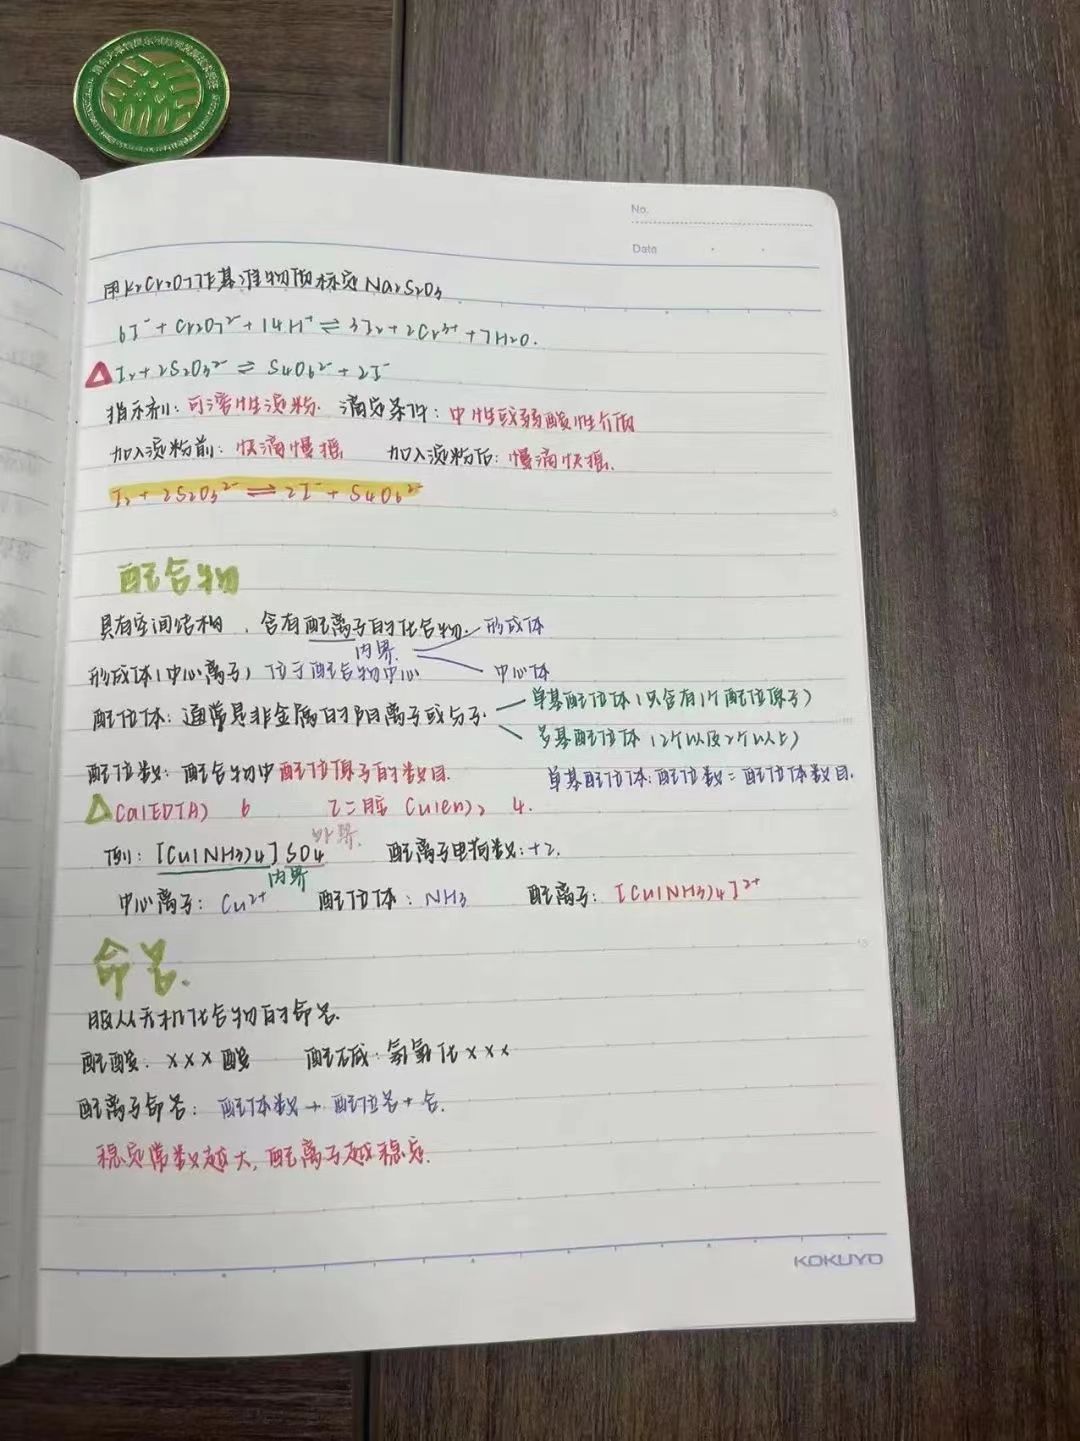 No.
Date
用K₂Cr₂O₇作基准物质标定Na₂S₂O₃
6I⁻ + Cr₂O₇²⁻ + 14H⁺ ⇌ 3I₂ + 2Cr³⁺ + 7H₂O.
△ I₂ + 2S₂O₃²⁻ ⇌ S₄O₆²⁻ + 2I⁻
指示剂: 可溶性淀粉. 滴定条件: 中性或弱酸性介质
加入淀粉前: 快滴慢摇 加入淀粉后: 慢滴快摇.
I₂ + 2S₂O₃²⁻ ⇌ 2I⁻ + S₄O₆²⁻
配合物
具有空间结构, 含有配离子的化合物. 形成体
内界.
形成体(中心离子) 位于配合物中心 中心体
单基配位体(只含有1个配位原子)
配位体: 通常是非金属的阴离子或分子.
多基配位体(2个以及2个以上)
配位数: 配合物中配位原子的数目. 单基配位体: 配位数=配位体数目.
△ Ca(EDTA) 6 乙二胺 Cu(en)₂ 4.
外界.
例: [Cu(NH₃)₄]SO₄ 配离子电荷数: +2.
内界
中心离子: Cu²⁺ 配位体: NH₃ 配离子: [Cu(NH₃)₄]²⁺
命名.
服从无机化合物的命名.
配酸: ×××酸 配碱: 氢氧化×××
配离子命名: 配体数 → 配位名 + 合.
稳定常数越大, 配离子越稳定.
KOKUYO